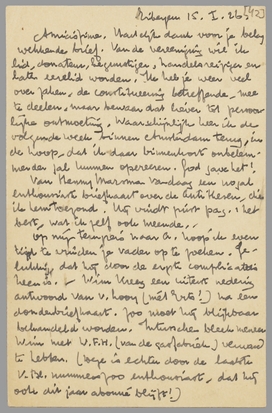 Nibbeyen 15. I. 26. [42]
Amicissime. Hartelijk dank voor je belangwekkende brief. Van de vereniging wil ik
lid, donateur, begunstiger, handelsreiziger en
later erelid worden. Ik heb je weer veel
over zaken, de constitueering betreffende, mee
te deelen, maar bewaar dat liever tot persoonlijke ontmoeting. Waarschijnlijk ben ik in de
volgende week binnen Amsterdam terug, in
de hoop, dat ik daar binnenkort onbelemmerder zal kunnen opereeren. God save het!
Van Henny Marsma vandaag een loyaal
enthousiaste briefkaart over de
die ik hem toezond. Hij vindt first pas, 't het
best, wat ik zelf ook meende.
Op mijn terugreis naar A. hoop ik even
tijd te vinden je vader op te zoeken. Gelukkig, dat hij door de ergste complicaties
heen is. Wim kreeg een uiterst nederig
antwoord van v. Looy (mét foto!) na een
donderbriefkaart. Zoo moet hij blijkbaar
behandeld worden. Intusschen bleek meneer
Wim met V.F.H. (van de gasfabriek) verward
te hebben. (Loge is echter door de laatste
V.Bl. nummers zoo enthousiast, dat hij
ook dit jaar abonné blijft!)